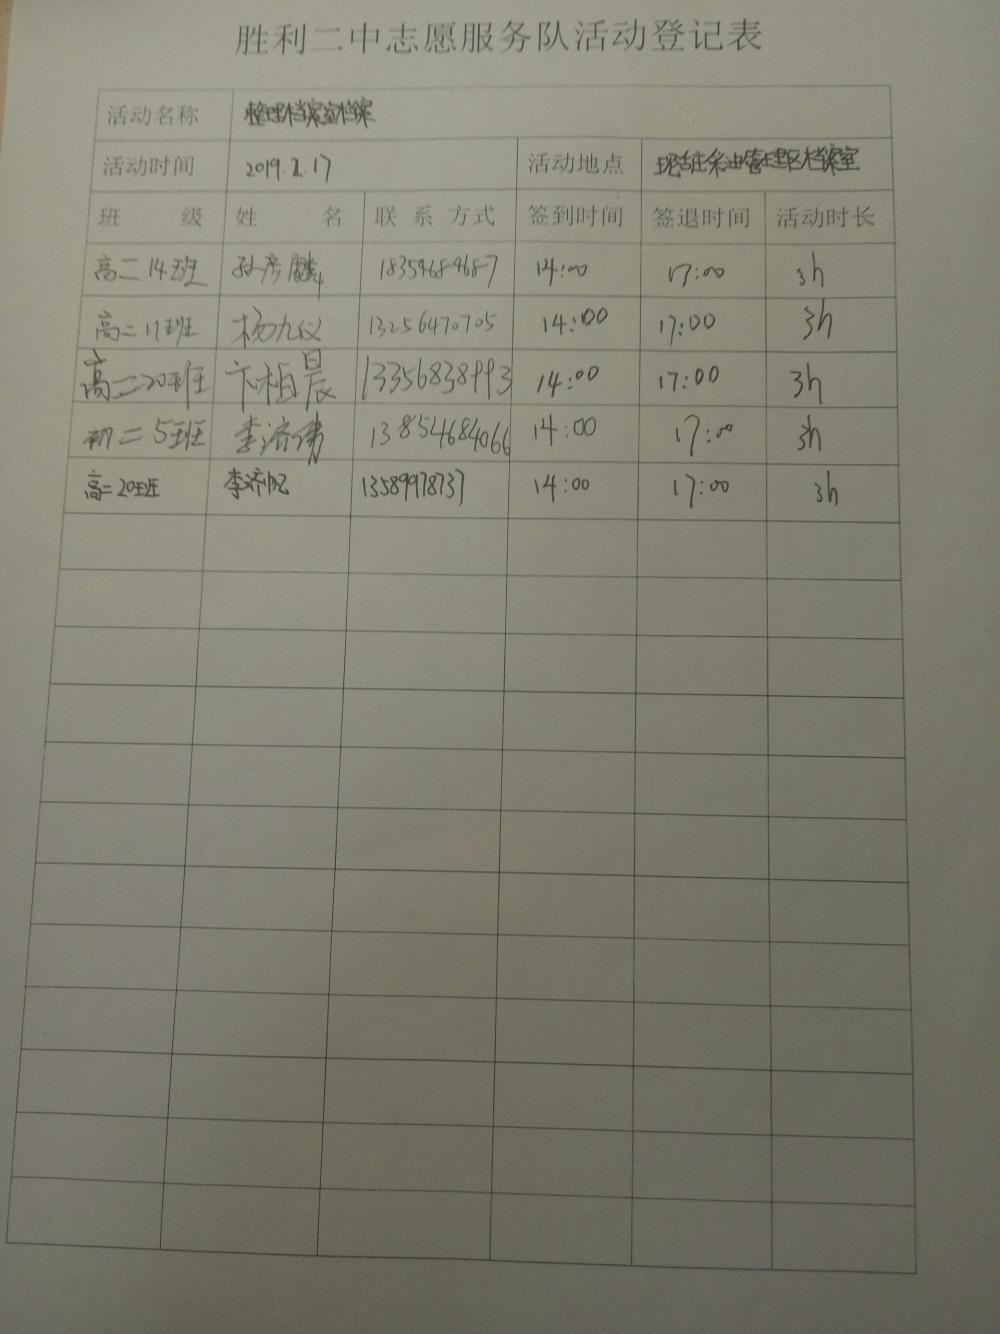 胜利二中志愿服务队活动登记表
活动名称 整理档案室档案
活动时间 2019.2.17 活动地点 现河庄采油管理区档案室
班 级 姓 名 联 系 方式 签到时间 签退时间 活动时长
高二14班 孙彦麟 18354684687 14:00 17:00 3h
高二17班 杨九仪 13256470705 14:00 17:00 3h
高二20班 卞柏晨 13356838993 14:00 17:00 3h
初二5班 李济 13854684066 14:00 17:00 3h
高二20班 李济帆 13589978737 14:00 17:00 3h